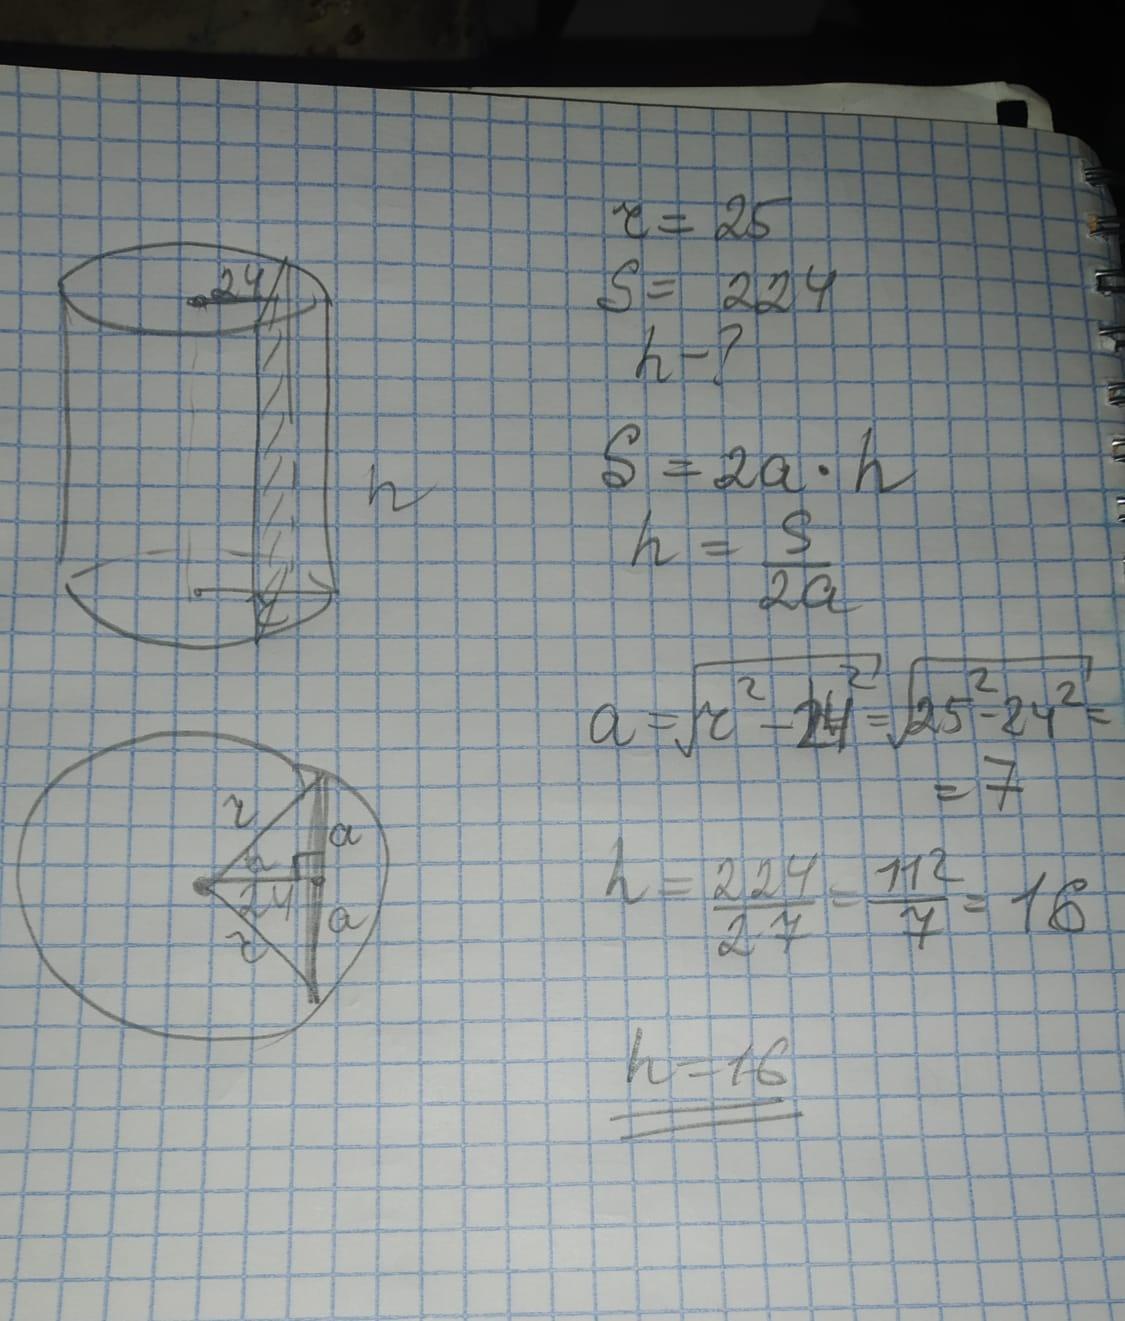 24
h
r
a
24
a
r
r = 25
S = 224
h - ?
S = 2a · h
h = S/2a
a = √r² - 24² = √25² - 24² =
= 7
h = 224/2·7 = 112/7 = 16
h = 16